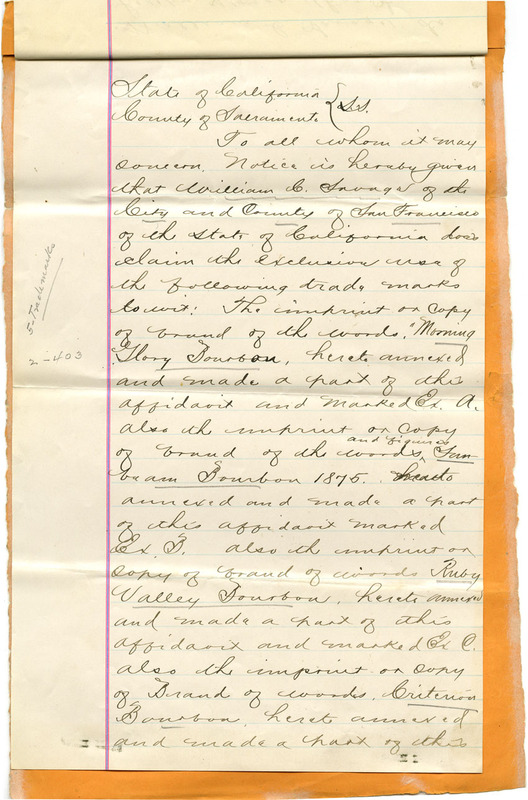 State of California } S.S.
County of Sacramento
To all whom it may
concern. Notice is hereby given
that William C. Savage of the
City and County of San Francisco
of the State of California does
claim the exclusive use of
the following trade marks
to wit: The imprint or copy
of brand of the words, "Morning
Glory Bourbon, hereto annexed
and made a part of this
affidavit and marked Ex. A.
also the imprint or copy
of brand of the words and figures Sun-
beam Bourbon 1875. hereto
annexed and made a part
of this affidavit marked
Ex. B. also the imprint or
copy of brand of words Ruby
Valley Bourbon, hereto annexed
and made a part of this
affidavit and marked Ex C.
also the imprint or copy
of Brand of words, Criterion
Bourbon, hereto annexed
and made a part of this
5-Trademarks
2-403